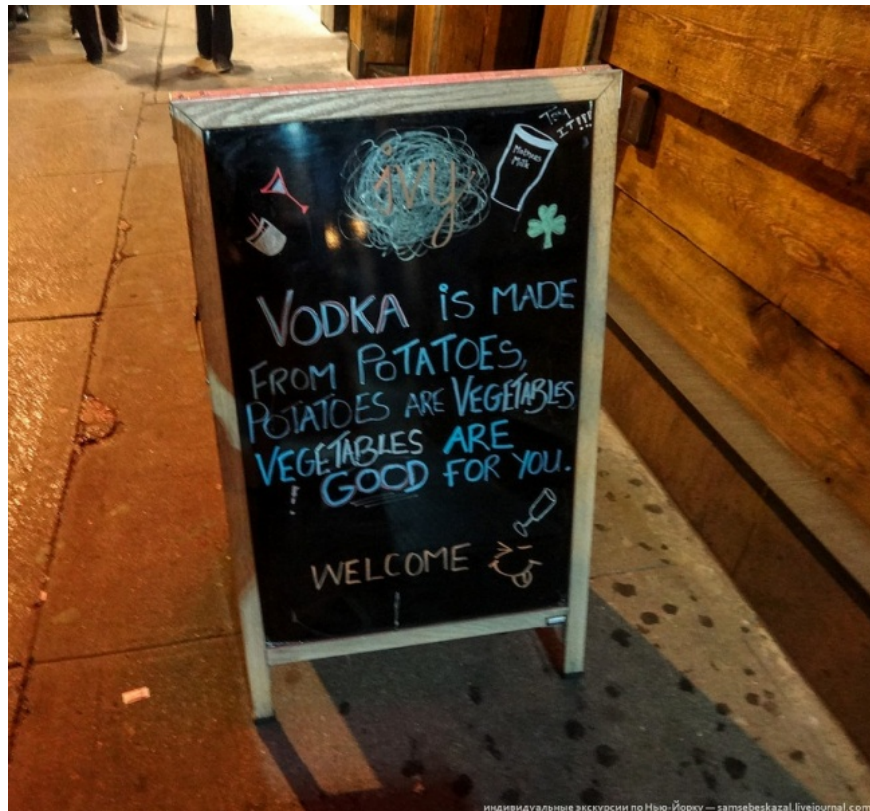 ivy
Try
IT!!!
Mothers
Milk
VODKA IS MADE
FROM POTATOES,
POTATOES ARE VEGETABLES,
VEGETABLES ARE
GOOD FOR YOU.
WELCOME
индивидуальные экскурсии по Нью-Йорку — samsebeskazal.livejournal.com